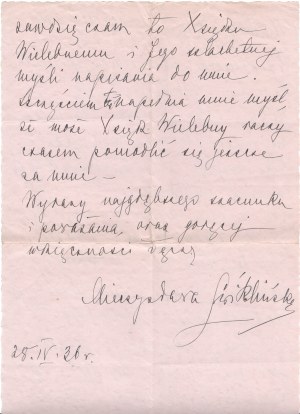 zawdzięczam to Księdzu
Wielebnemu i Jego szlachetnej
myśli napisania do mnie.
Szczęściem napełnia mnie myśl
że może Ksiądz Wielebny raczy
czasem pomodlić się jeszcze
za mnie —
Wyrazy najgłębszego szacunku
i poważania oraz gorącej
wdzięczności łączę
Mieczysława
28.IV.36 r.